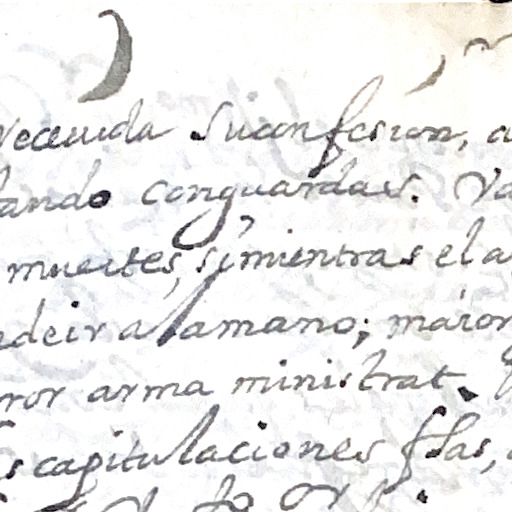 recevida suconfesion, a
ando conguardas. Va
muertes, simientras el a
deir alamano; maior
ror arma ministrat.
s capitulaciones fhas,